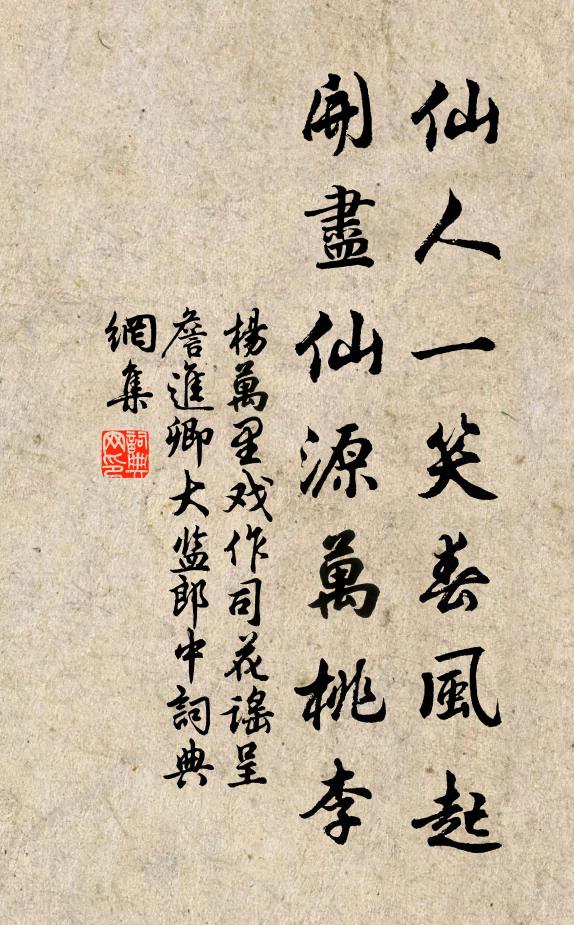 仙人一笑春風起
開盡仙源萬桃李
楊萬里戏作司花謠呈
詹進卿大监郎中詞典
網集
詞典
网印